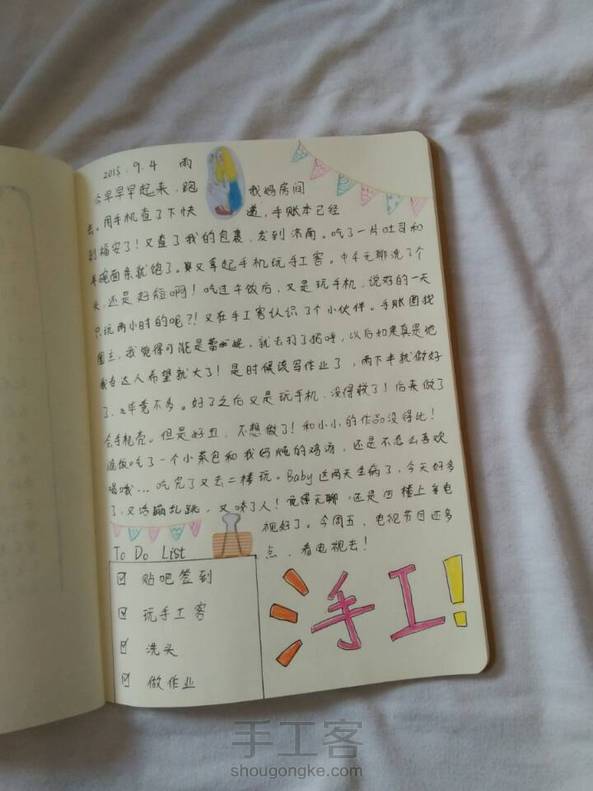 2015.9.4 雨
今早早早起来，跑 我妈房间
去。用手机查了下快 递，手账本已经
到福安了！又查了我的包裹，发到济南。吃了一片吐司和
半碗面条就饱了。又拿起手机玩手工客。中午无聊洗了个
头，还是好短啊！吃过午饭后，又是玩手机，说好的一天
只玩两小时的呢？！又在手工客认识了个小伙伴。手账圈找
圈主，我觉得可能是蕾 ，就去打了招呼，以后如果真是她
我当达人希望就大了！是时候该写作业了，两下半就做好
了，毕竟不多。好了之后又是玩手机，没得救了！后来做了
会手机壳。但是好丑，不想做了！和小小的作品没得比！
晚饭吃了一个小菜包和我妈炖的鸡汤，还是不怎么喜欢
喝哦...吃完了又去二楼玩。Baby这两天生病了，今天好多
了，又活蹦乱跳，又咬了人！觉得无聊，还是回楼上看电
视好了。今周五，电视节目还多
点，看电视去！
To Do List
贴吧签到
玩手工客
洗头
做作业
手工！
手工客
shougongke.com